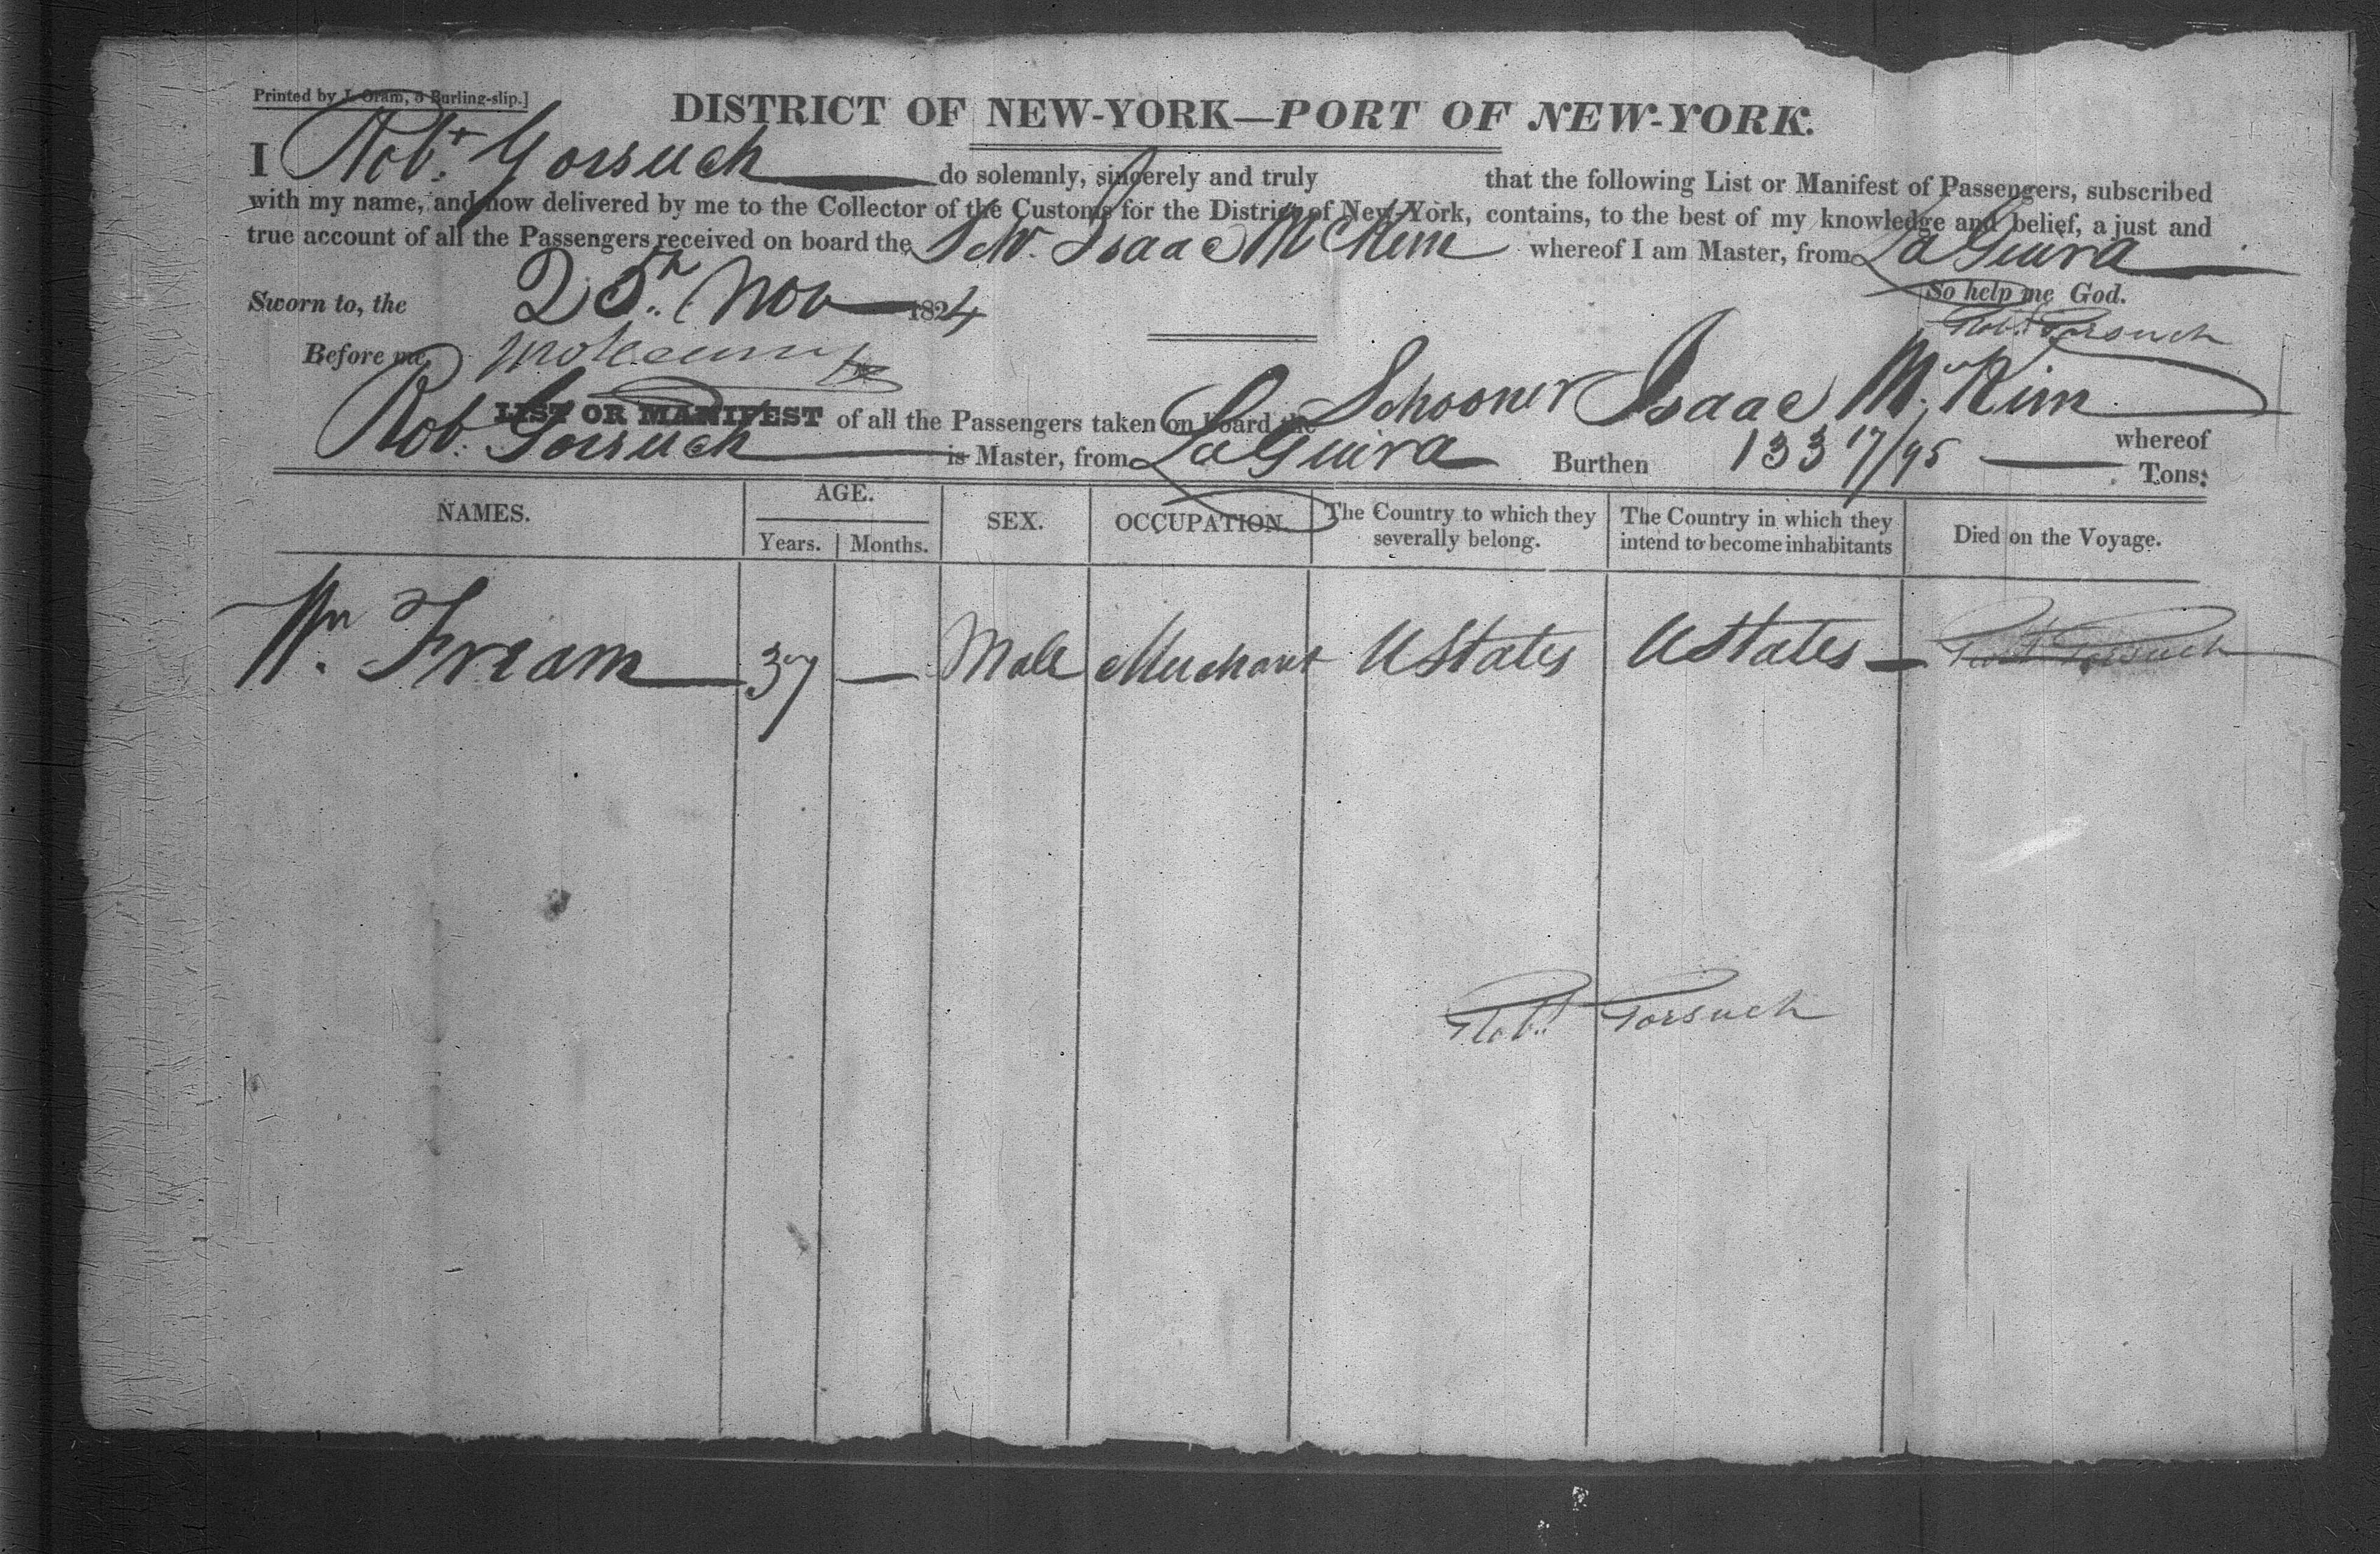 Printed by J. Oram, 5 Burling-slip.]
DISTRICT OF NEW-YORK—PORT OF NEW-YORK.
I Robt. Gorsuch do solemnly, sincerely and truly that the following List or Manifest of Passengers, subscribed
with my name, and now delivered by me to the Collector of the Customs for the District of New-York, contains, to the best of my knowledge and belief, a just and
true account of all the Passengers received on board the Schr. Isaac McKim whereof I am Master, from La Guira
Sworn to, the 25th. Nov 1824 So help me God.
Robt. Gorsuch
Before me,
LIST OR MANIFEST of all the Passengers taken on board the Schooner Isaac McKim whereof
Rob. Gorsuch is Master, from La Guira Burthen 133 17/95 Tons.
NAMES. AGE. SEX. OCCUPATION. The Country to which they severally belong. The Country in which they intend to become inhabitants Died on the Voyage.
Years. Months.
Wm Fream 37 — Male Merchant UStates UStates — Robt Gorsuch
Robt. Gorsuch